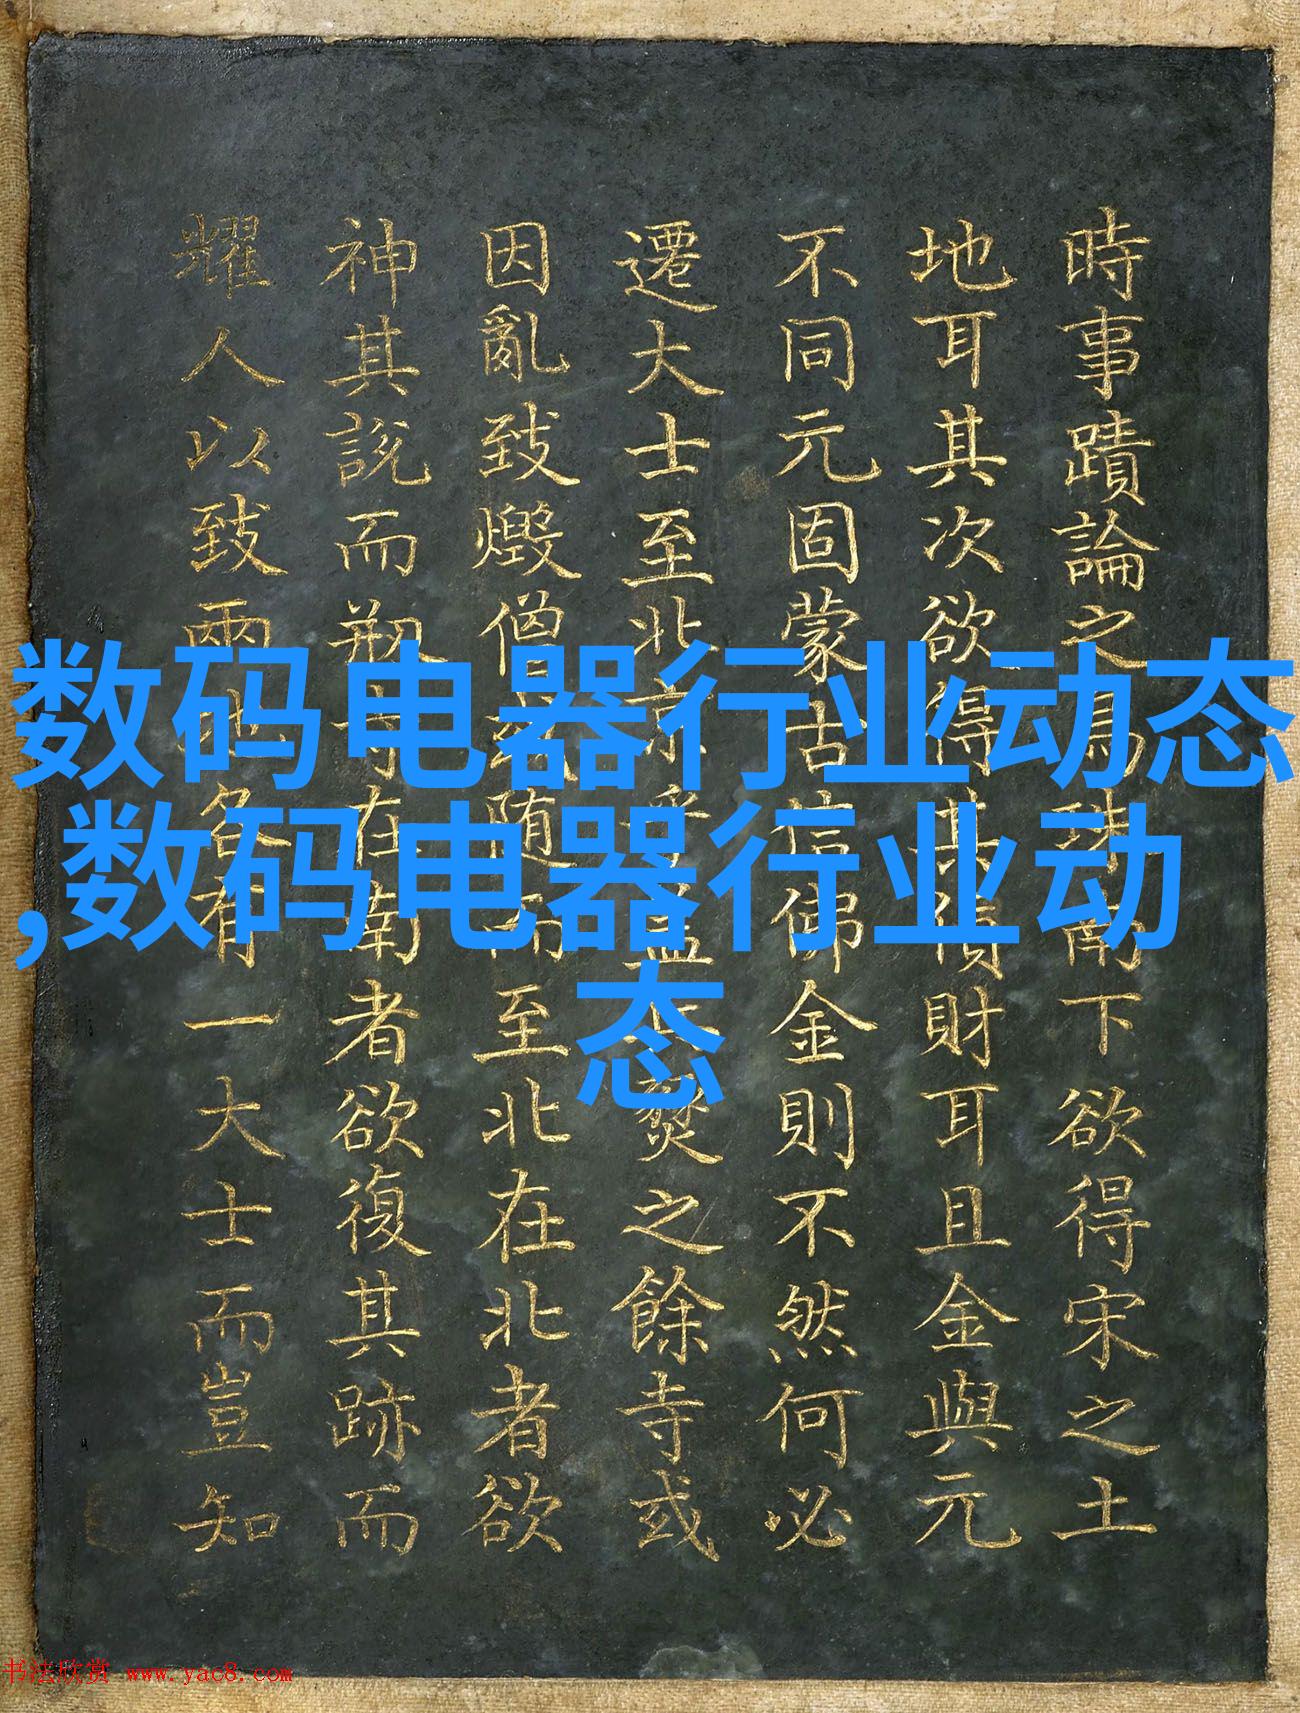 時事蹟論之為珠南下欲得宋之土
地耳其次欲得其貨財耳且金與元
不同元固蒙古信佛金則不然何必
遷大士至北京乎葢焚之餘寺或
因亂致燬僧或随而至北在北者欲
神其說而剏寺在南者欲復其跡而
耀人以致兩地各有一大士而豈知
数码电器行业动态
,数码电器行业动
态
书法欣赏 www.yac8.com